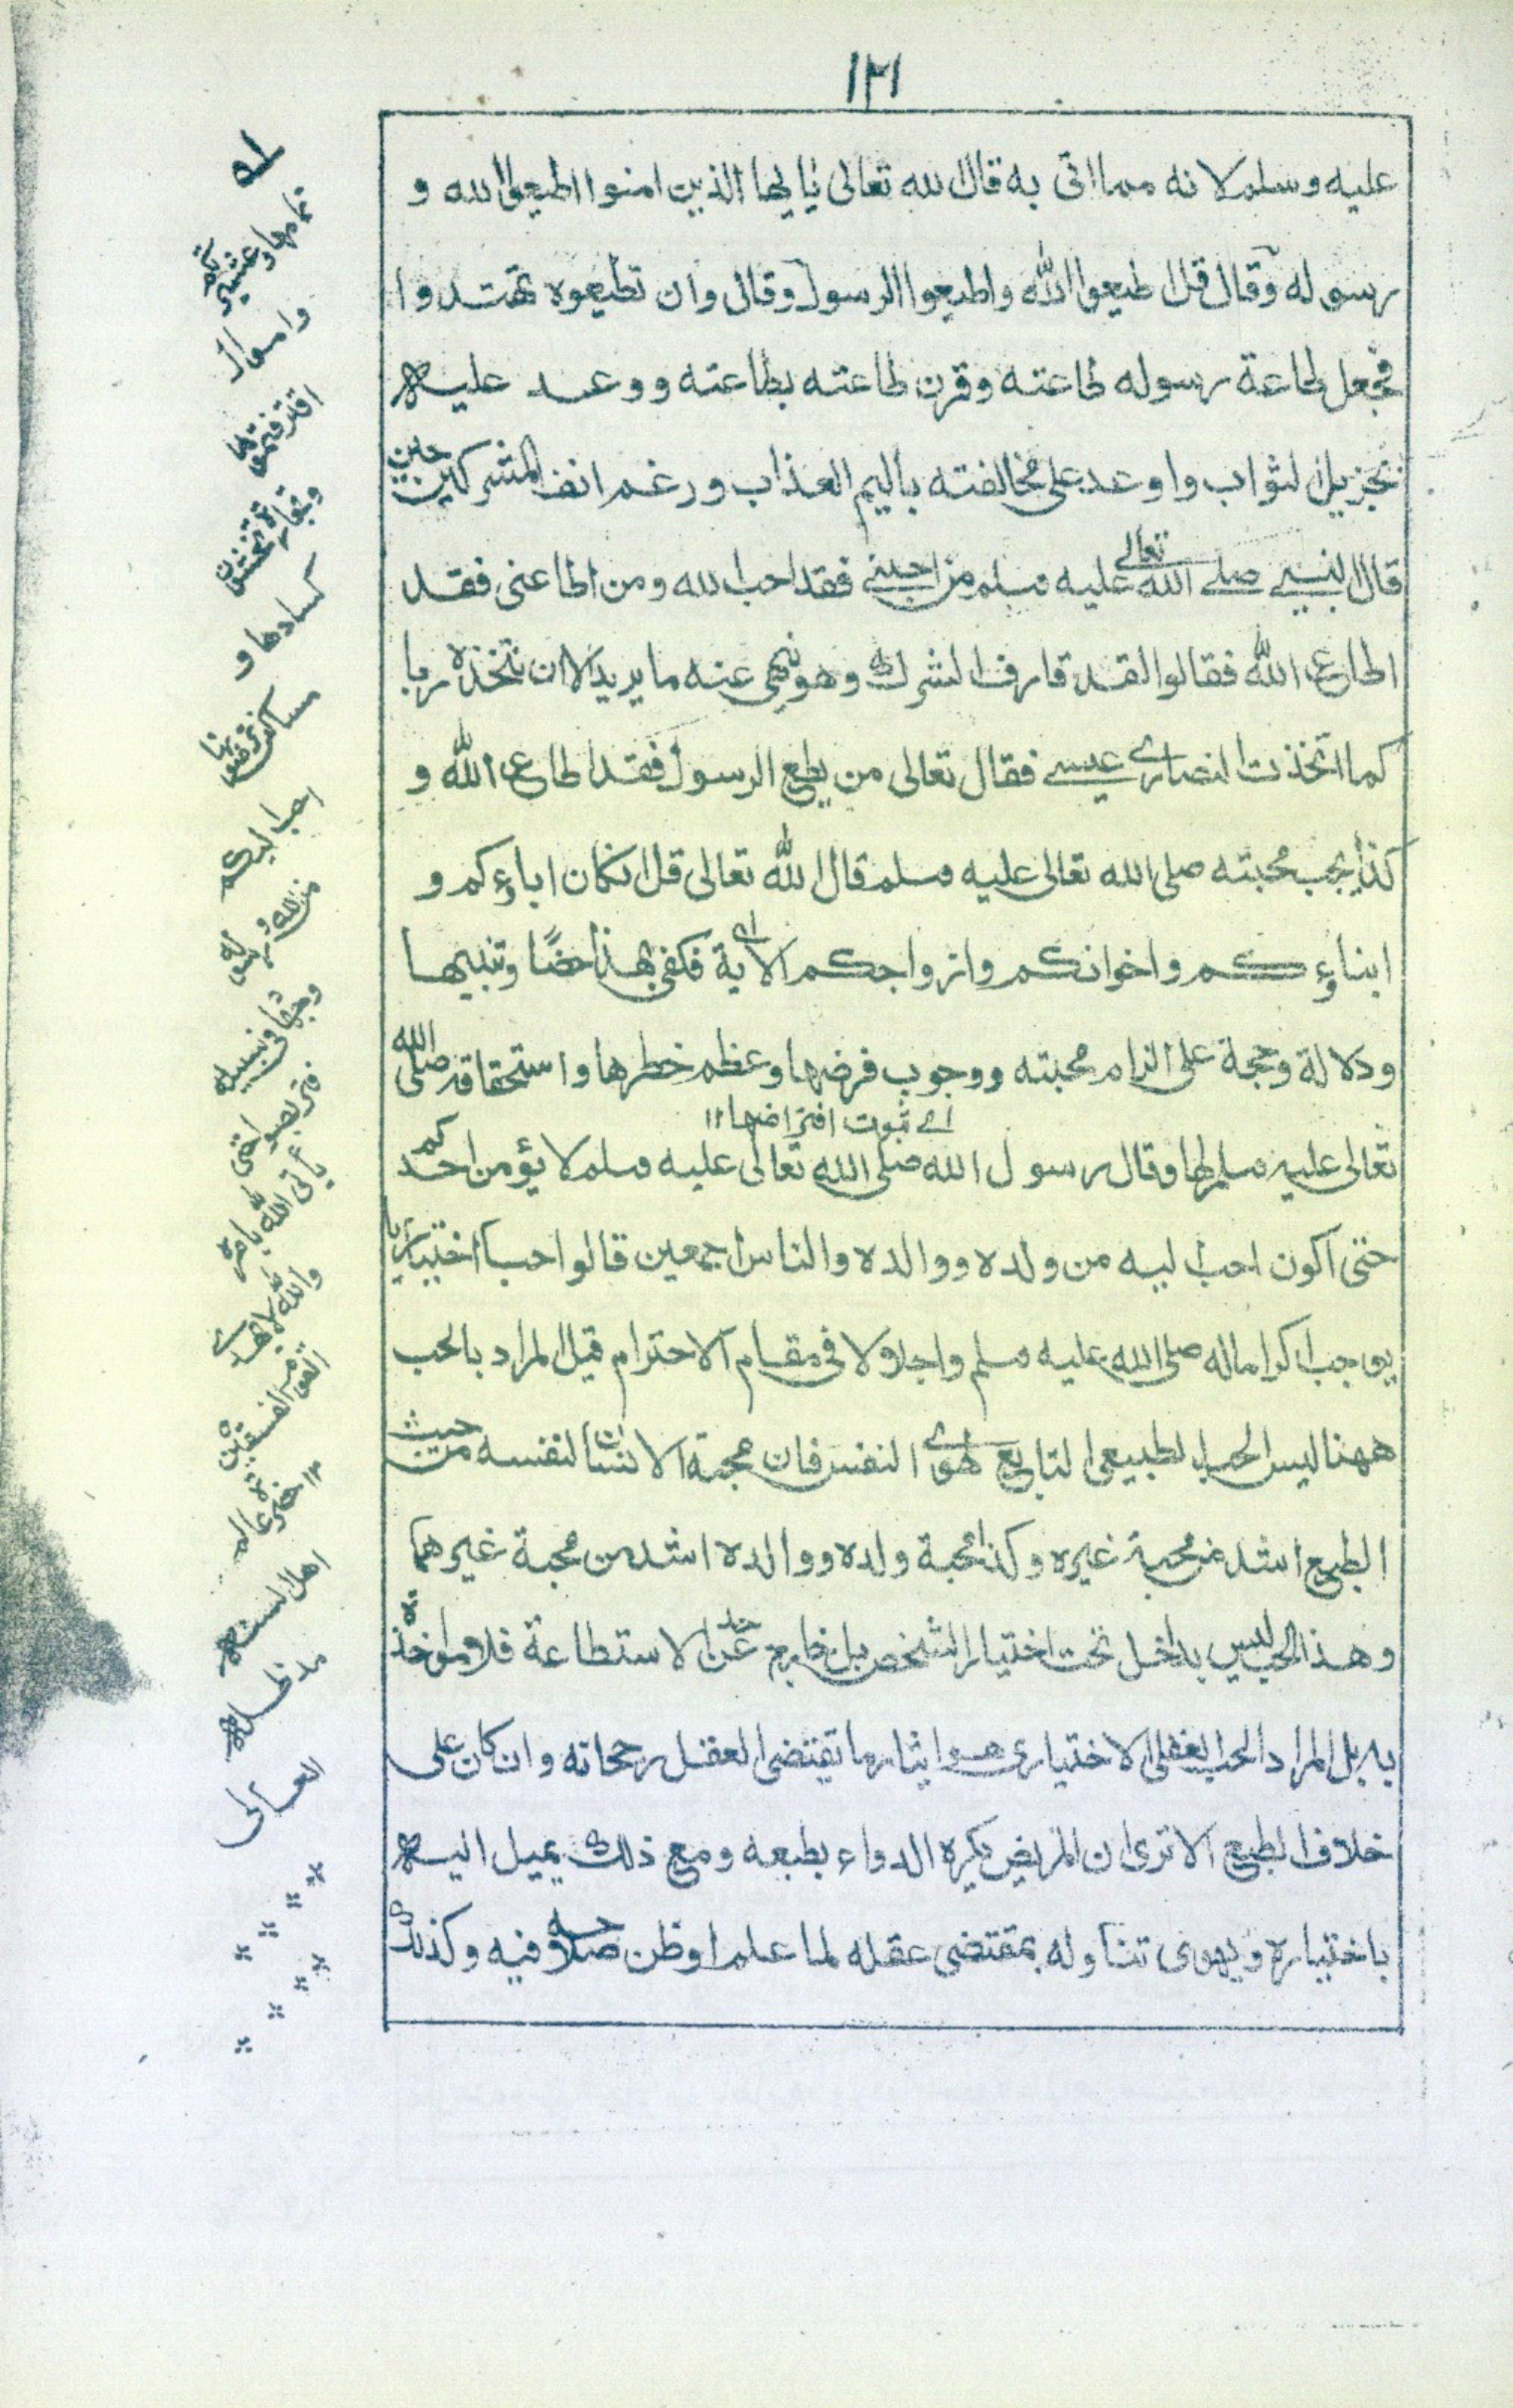 ١٢١
عليه وسلم لانه مما اتى به قال الله تعالى يٰايها الذين امنوا اطيعوا الله و
رسوله وقال قل اطيعوا الله واطيعوا الرسول وقال وان تطيعوه تهتدوا
فجعل طاعة رسوله طاعته وقرن طاعته بطاعته ووعد عليه
بجزيل الثواب واوعد على مخالفته باليم العذاب ورغم انف المشركين حين
قال النبي صلے الله تعالى عليه وسلم من احبنى فقد احب الله ومن اطاعنى فقد
اطاع الله فقالوا لقد قارف الشرك وهو نهى عنه ما يريد الا ان نتخذه ربا
كما اتخذت النصارى عيسے فقال تعالى من يطع الرسول فقد اطاع الله و
كذا يجب محبته صلى الله تعالى عليه وسلم قال الله تعالى قل ان كان اباؤكم و
ابناؤكم واخوانكم وازواجكم الاية فكفى بهذا حضًا وتنبيها
ودلالة وحجة على الزام محبته ووجوب فرضها وعظم خطرها واستحقاقه صلى الله
اے ثبوت افتراضها ١١
تعالى عليه وسلم لها وقال رسول الله صلى الله تعالى عليه وسلم لا يؤمن احدكم
حتى اكون احب اليه من ولده ووالده والناس اجمعين قالوا حبا اختياريا
يوجب اكراما له صلى الله عليه وسلم واجلالا فى مقام الاحترام قيل المراد بالحب
ههنا ليس الحب الطبيعى التابع لهوى النفس فان محبة الانسان لنفسه من حيث
الطبع اشد من محبة غيره وكذا محبة ولده ووالده اشد من محبة غيرهما
وهذا الحب ليس بداخل تحت اختيار الشخص بل خارج عن حد الاستطاعة فلا مواخذة
به بل المراد الحب العقلى الاختيارى هو ايثار ما تقتضى العقل رجحانه وان كان على
خلاف الطبع الا ترى ان المريض يكره الدواء بطبعه ومع ذلك يميل اليه
باختياره ويهوى تناوله بمقتضى عقله لما علم او ظن صلاحه فيه وكذلك
تمامها وعشيرتكم
واموال
اقترفتموها
وتجارة تخشون
كسادها و
مساكن ترضونها
احب اليكم
من الله ورسوله
وجهاد فى سبيله
فتربصوا حتى
يأتى الله بامره
والله لا يهدى
القوم الفسقين
١٢ حضرة عالم
اهل السنة
مد ظله
العالى